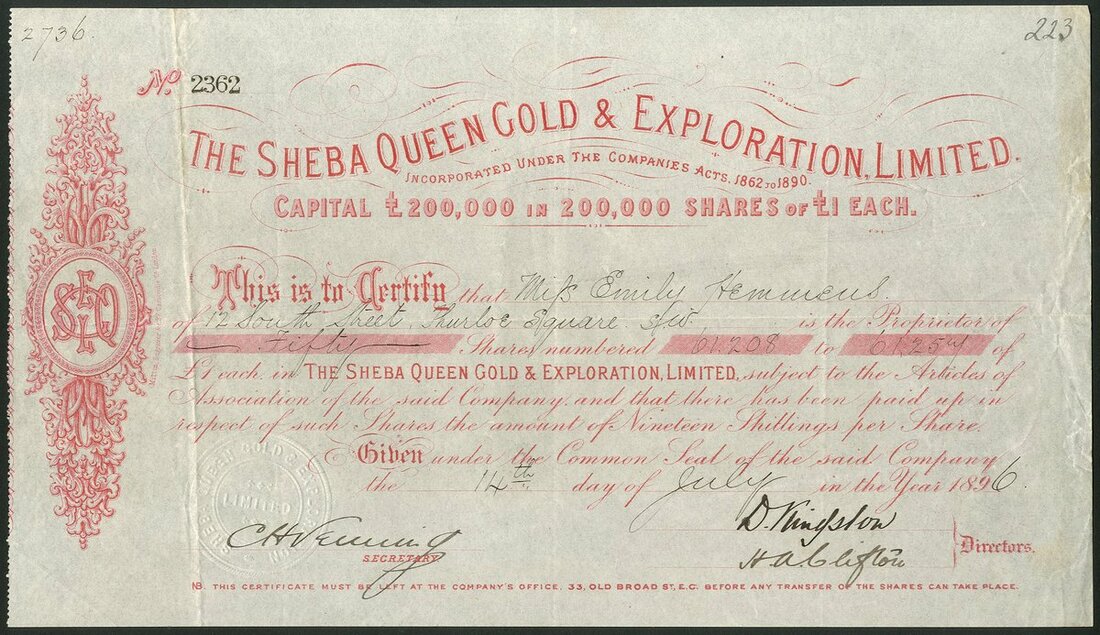 2736.
223
No. 2362
THE SHEBA QUEEN GOLD & EXPLORATION, LIMITED.
INCORPORATED UNDER THE COMPANIES ACTS, 1862 TO 1890.
CAPITAL £200,000 IN 200,000 SHARES OF £1 EACH.
This is to Certify that Miss Emily Hemmens
of 12 South Street, Thurloe Square S.W. is the Proprietor of
Fifty Shares numbered 61.208 to 61.257 of
£1 each in THE SHEBA QUEEN GOLD & EXPLORATION, LIMITED, subject to the Articles of
Association of the said Company, and that there has been paid up in
respect of such Shares the amount of Nineteen Shillings per Share.
Given under the Common Seal of the said Company
the 14th day of July in the Year 1896.
SHEBA QUEEN GOLD & EXPLORATION
LIMITED
D. Kingston
SECRETARY
H A Clifton
Directors.
NB. THIS CERTIFICATE MUST BE LEFT AT THE COMPANY'S OFFICE, 33, OLD BROAD ST, E.C. BEFORE ANY TRANSFER OF THE SHARES CAN TAKE PLACE.